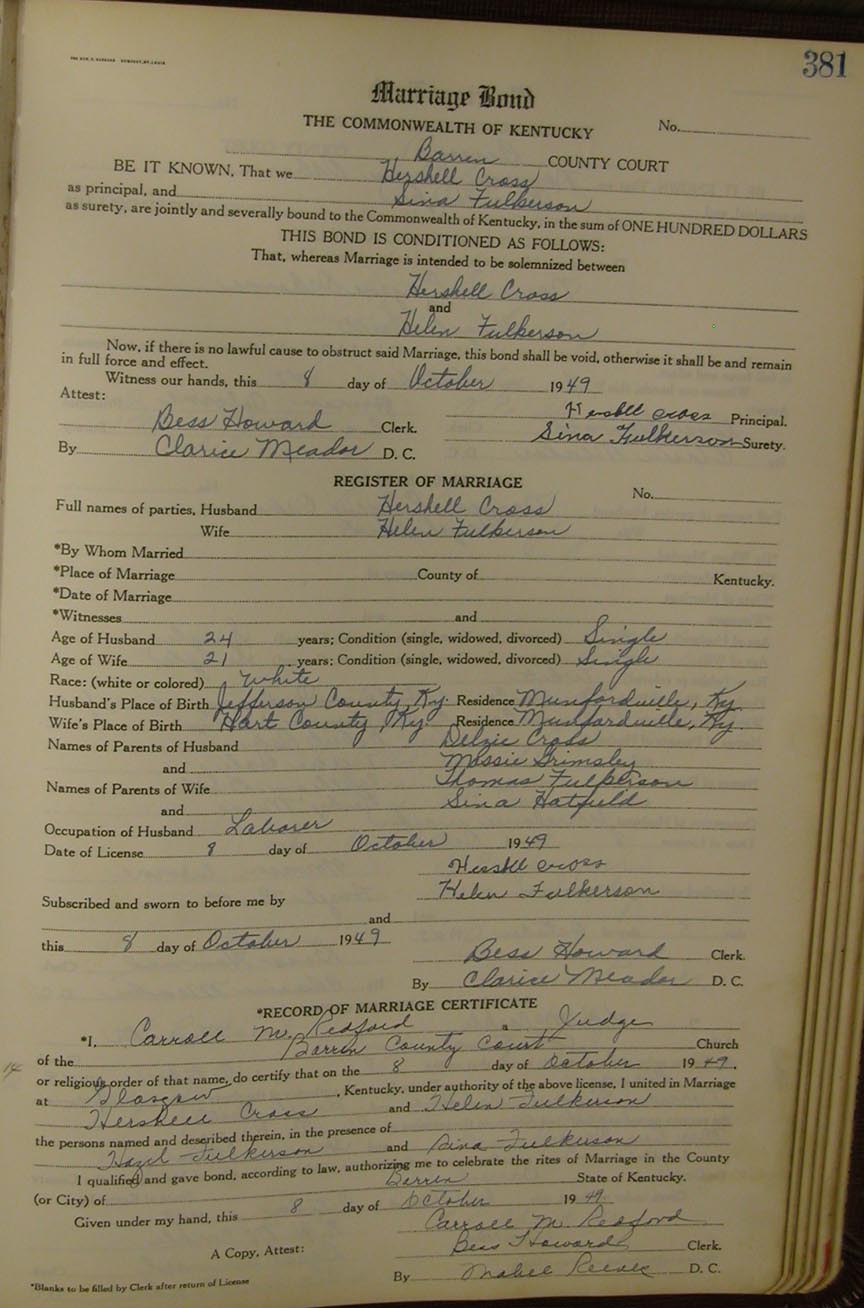 381
Marriage Bond
THE COMMONWEALTH OF KENTUCKY No.
Barren COUNTY COURT
BE IT KNOWN, That we Hershell Cross
as principal, and Sina Fulkerson
as surety, are jointly and severally bound to the Commonwealth of Kentucky, in the sum of ONE HUNDRED DOLLARS
THIS BOND IS CONDITIONED AS FOLLOWS:
That, whereas Marriage is intended to be solemnized between
Hershell Cross
and
Helen Fulkerson
Now, if there is no lawful cause to obstruct said Marriage, this bond shall be void, otherwise it shall be and remain
in full force and effect.
Witness our hands, this 8 day of October 1949
Attest:
Hershll cross Principal.
Bess Howard Clerk.
Sina Fulkerson Surety.
By Clarice Meador D. C.
REGISTER OF MARRIAGE
No.
Full names of parties, Husband Hershell Cross
Wife Helen Fulkerson
*By Whom Married
*Place of Marriage County of Kentucky.
*Date of Marriage
*Witnesses and
Age of Husband 24 years; Condition (single, widowed, divorced) Single
Age of Wife 21 years; Condition (single, widowed, divorced) Single
Race: (white or colored) White
Husband's Place of Birth Jefferson County, Ky. Residence Munfordville, Ky.
Wife's Place of Birth Hart County, Ky. Residence Munfordville, Ky.
Names of Parents of Husband Delzie Cross
and Messie Grimsley
Names of Parents of Wife Thomas Fulkerson
and Sina Hatfield
Occupation of Husband Laborer
Date of License 8 day of October 1949
Hershll cross
Helen Fulkerson
Subscribed and sworn to before me by
and
this 8 day of October 1949
Bess Howard Clerk.
By Clarice Meador D. C.
*RECORD OF MARRIAGE CERTIFICATE
*I, Carroll M. Redford a Judge
of the Barren County Court Church
or religious order of that name, do certify that on the 8 day of October 1949.
at Glasgow, Kentucky, under authority of the above license, I united in Marriage
Hershell Cross and Helen Fulkerson
the persons named and described therein, in the presence of
Hazel Fulkerson and Sina Fulkerson
I qualified and gave bond, according to law, authorizing me to celebrate the rites of Marriage in the County
(or City) of Barren State of Kentucky.
Given under my hand, this 8 day of October 1949
Carroll M. Redford
A Copy, Attest: Bess Howard Clerk.
By Mabel Reeves D. C.
*Blanks to be filled by Clerk after return of License